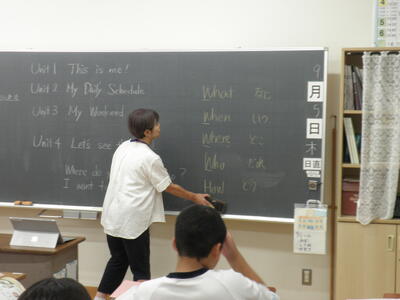 Unit 1 This is me!
Unit 2 My Daily Schedule
Unit 3 My Weekend
Unit 4 Let's see
Where do ?
I want t
What なに
When いつ
Where どこ
Who だれ
How どう
9
月
5
日
木
日直